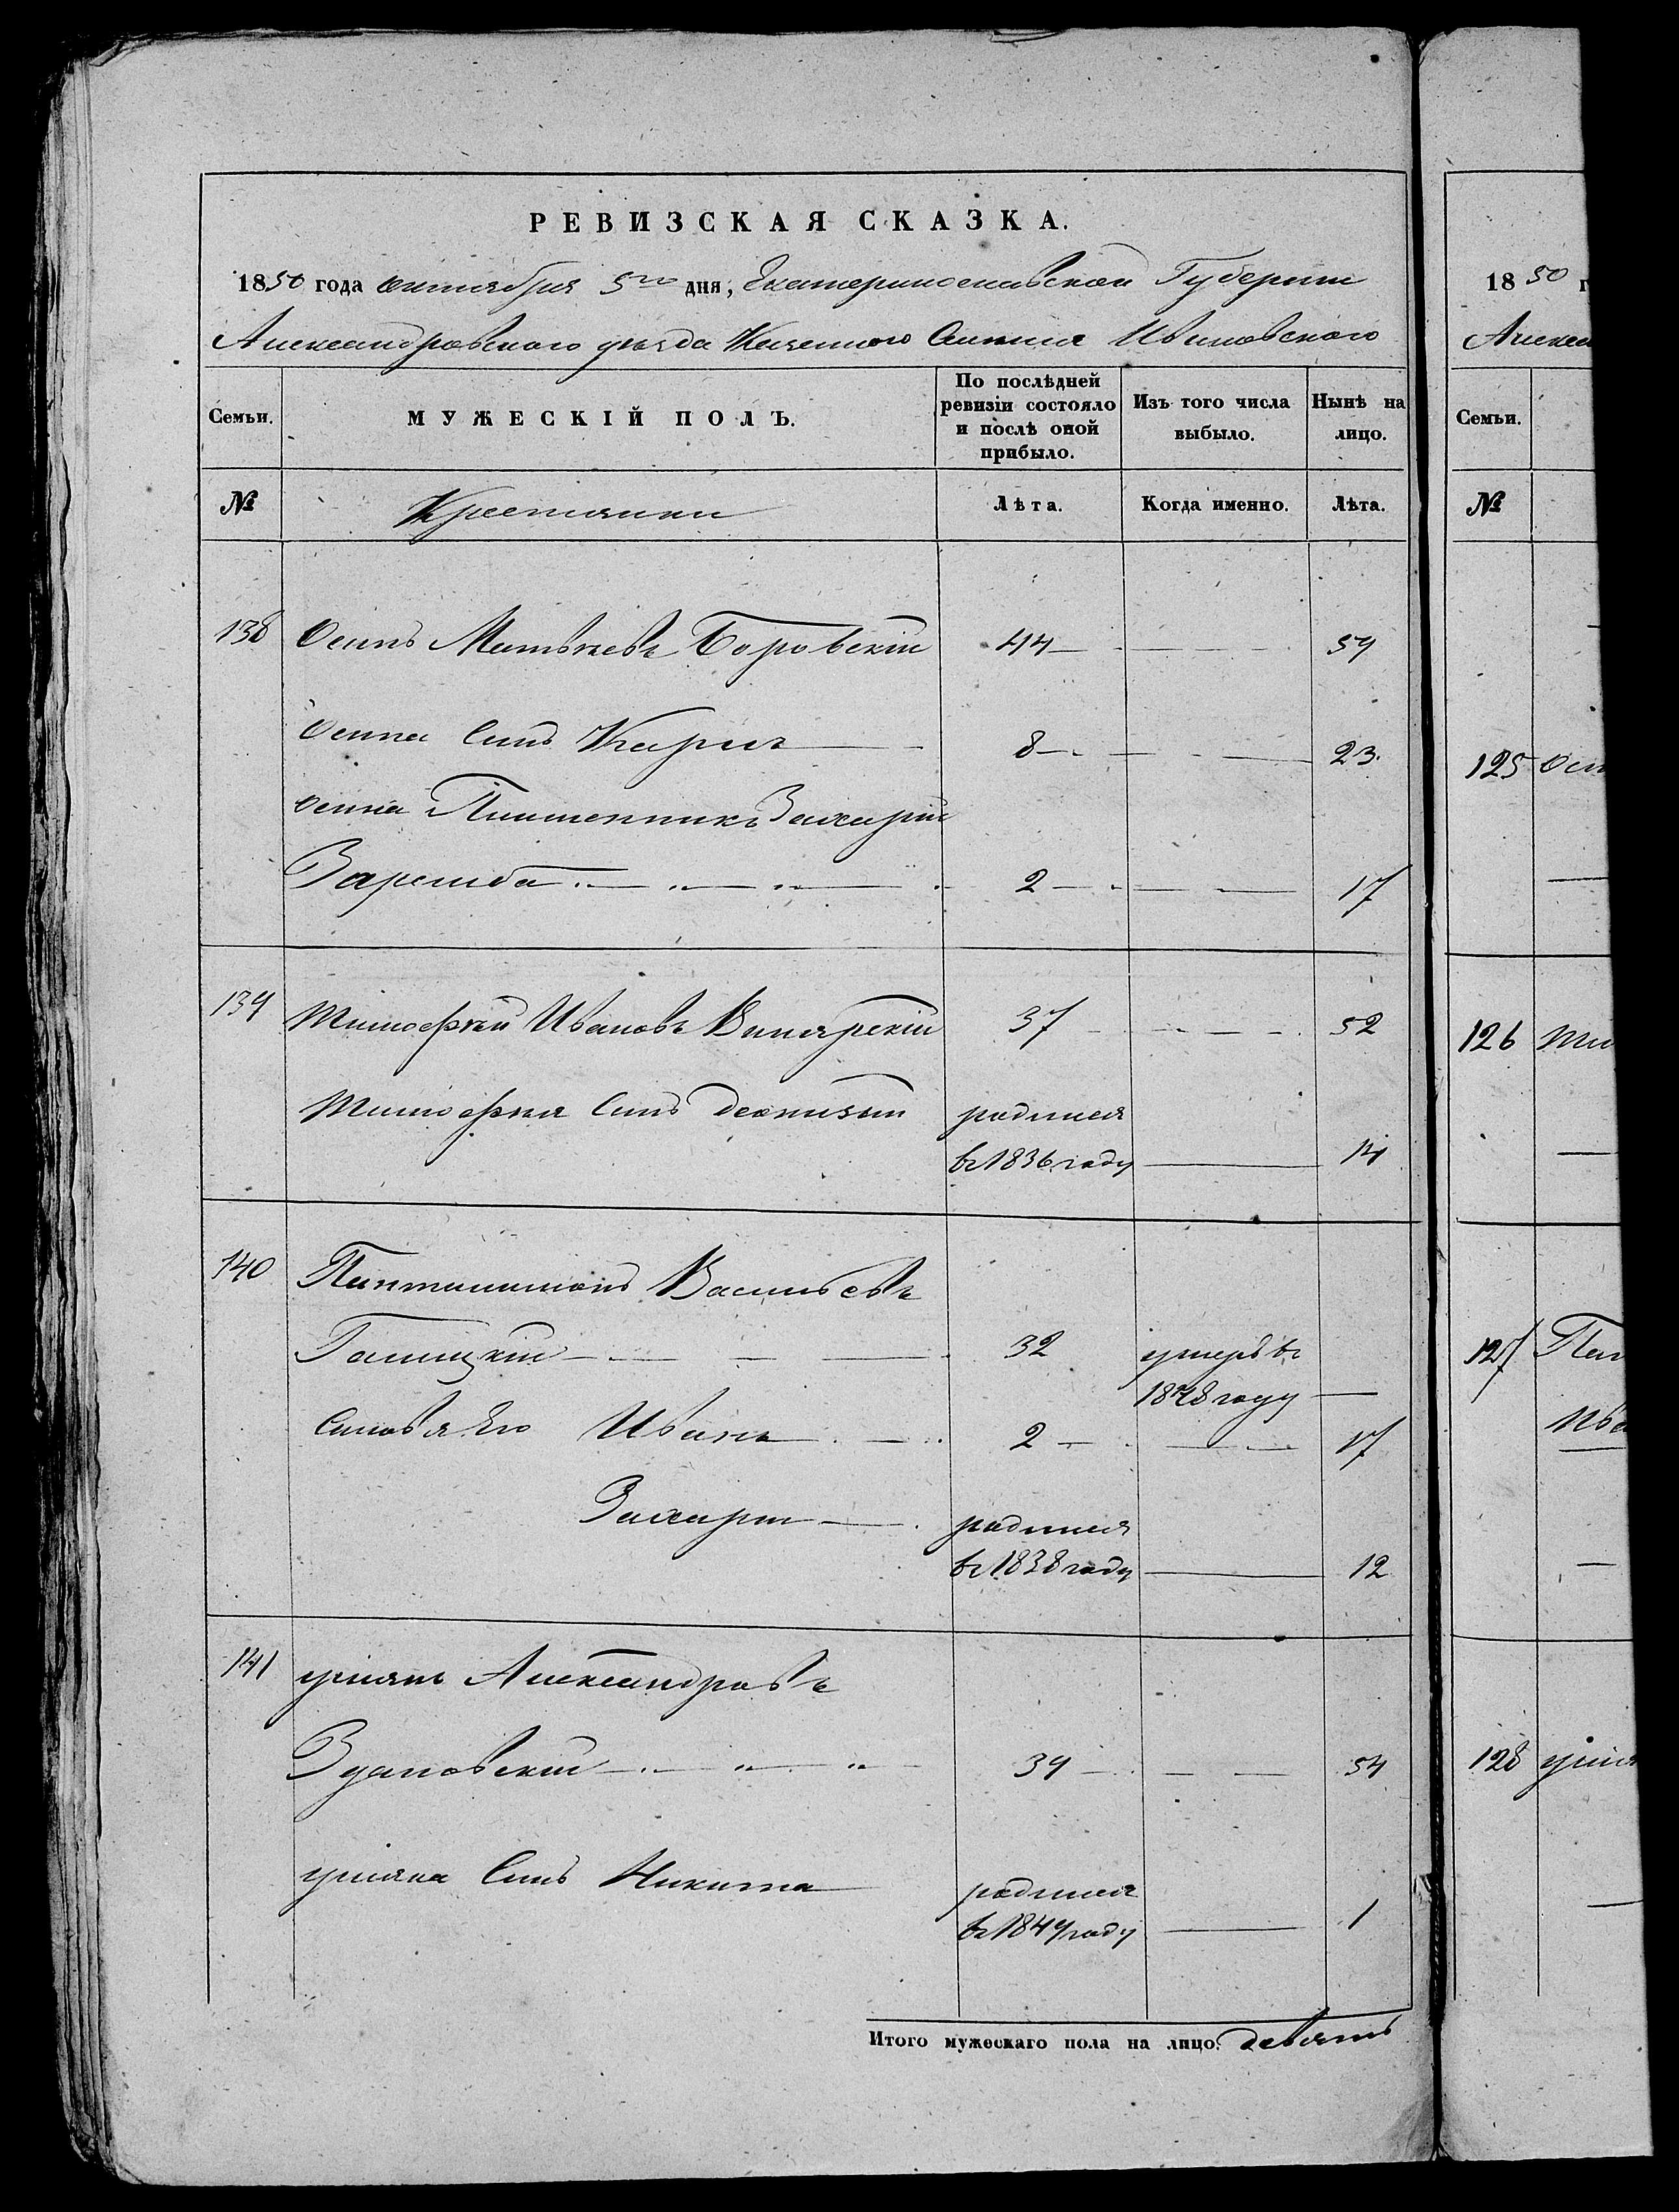 РЕВИЗСКАЯ СКАЗКА.
1850 года октября 5го дня, Екатеринославской Губернии
Александровского уезда Казенного Селения
Семьи.
МУЖЕСКІЙ ПОЛЪ.
По послѣдней ревизіи состояло и послѣ оной прибыло.
Изъ того числа выбыло.
Нынѣ на лицо.
№
Крестьянин
Лѣта.
Когда именно.
Лѣта.
138 Осипъ Матвѣевъ Боровскій 44 59
Осипа Сынъ Карпъ 8 23.
Осипа Пліменникъ Захарій
Заремба 2 17
139 Тимофѣй Ивановъ Винярскій 37 52
Тимофѣя Сынъ Деонизій родился
въ 1836 году 14
140 Пантилимонъ Васильевъ
Галицкій 32 умеръ въ
1848 году
Сыновья Его Иванъ 2 17
Захарій родился
въ 1838 году 12
141 Уліянъ Александровъ
39 54
Уліяна Сынъ Никита родился
въ 1849 году 1
Итого мужескаго пола на лицо. девять
1850 г
Алекса
Семьи.
№
125 Оси
126 Ти
127 Пан
Ива
128 Уліа